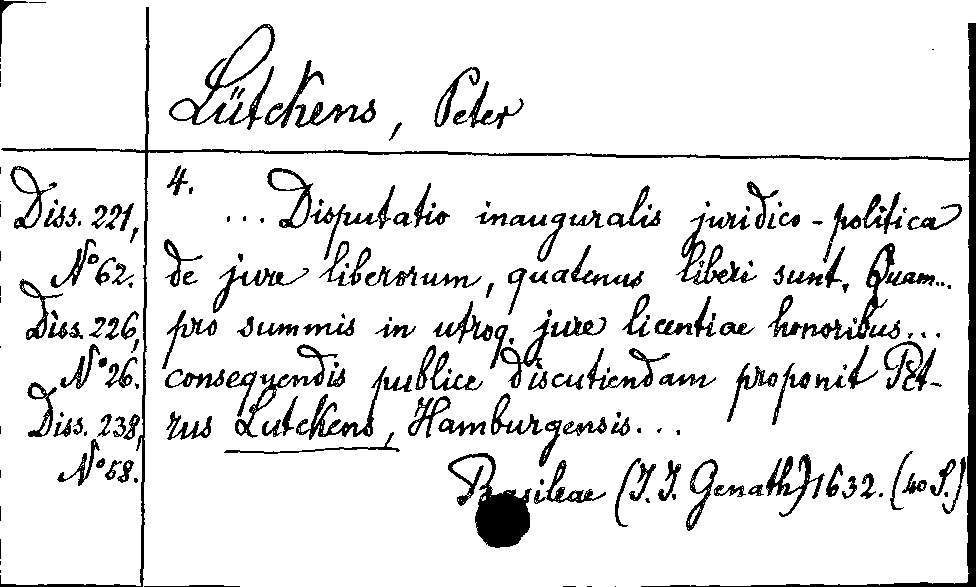 Lütckens, Peter
4.
Diss. 221,
N° 62.
Diss. 226,
N° 26.
Diss. 238,
N° 58.
... Disputatio inauguralis juridico-politica
de jure liberorum, quatenus liberi sunt. Quam...
pro summis in utroq. jure licentiae honoribus...
consequendis publice discutiendam proponit Pet-
rus Lutckens, Hamburgensis...
Basileae (J. J. Genath) 1632. (40 S.)